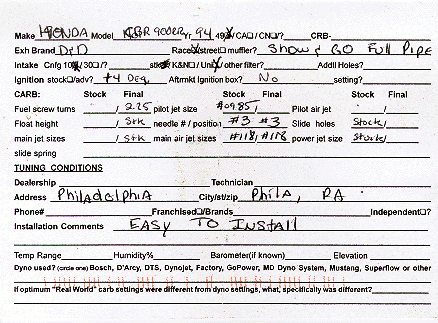 Make HONDA Model CBR 900RR Yr 94 49/CA/CN/? CRB-
Exh Brand D&D Race/street muffler? Show & GO Full Pipe
Intake Cnfg 10 / 30 /? stk K&N Uni other filter? Addtl Holes?
Ignition stock/adv? +4 Deg Aftrmkt Ignition box? No setting?
CARB: Stock Final Stock Final Stock Final
Fuel screw turns / 2.25 pilot jet size #0985/ Pilot air jet /
Float height / Stk needle # / position #3 #3 Slide holes Stock/
main jet sizes / Stk main air jet sizes #118/#118 power jet size Stock/
slide spring
TUNING CONDITIONS
Dealership Technician
Address Philadelphia City/st/zip Phila, PA
Phone# Franchised/Brands Independent?
Installation Comments EASY TO INSTAll
Temp Range Humidity% Barometer(if known) Elevation
Dyno used? (circle one) Bosch, D'Arcy, DTS, Dynojet, Factory, GoPower, MD Dyno System, Mustang, Superflow or other
If optimum "Real World" carb settings were different from dyno settings, what, specifically was different?